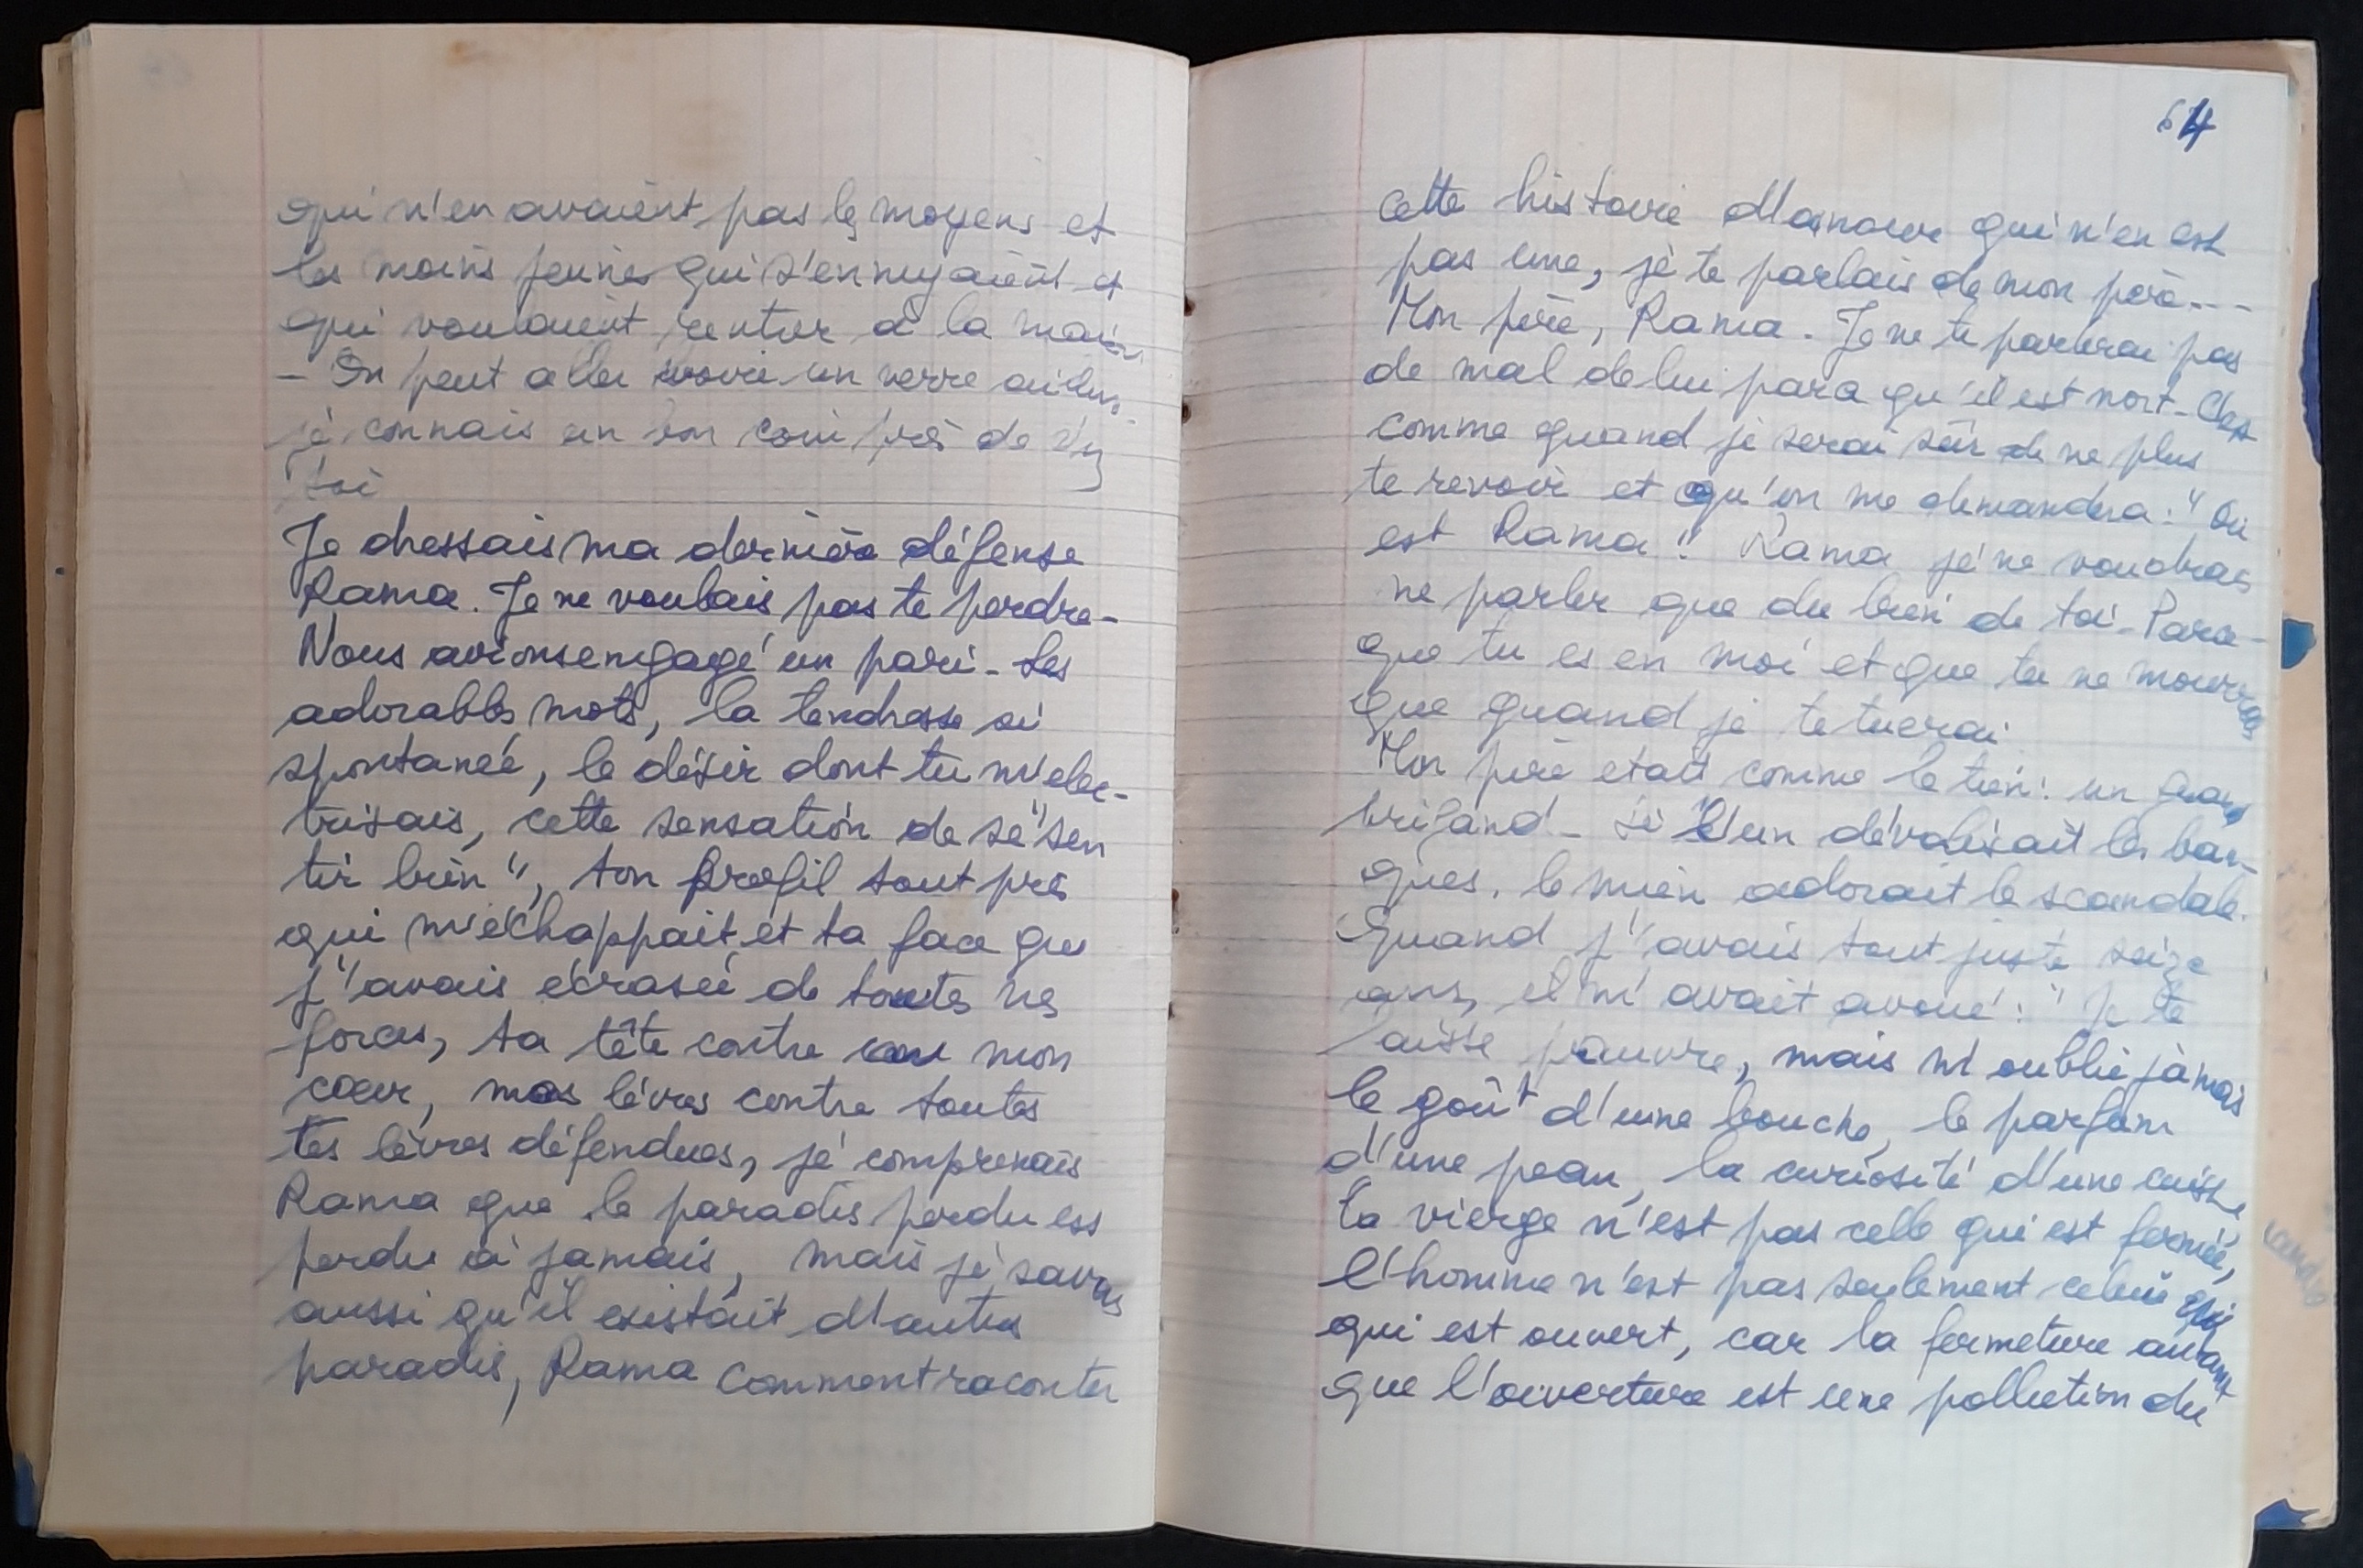 qui n'en avaient pas les moyens et
les moins jeunes qui s'ennuyaient et
qui voulaient rentrer à la maison
- On peut aller boire un verre ailleurs
je connais un bon coin près de
toi
Je dressais ma dernière défense
Rama. Je ne voulais pas te perdre-
Nous avions engagé un pari - Les
adorables mots, la tendresse si
spontanée, le désir dont tu m'élec-
trisais, cette sensation de se "sen
tir bien", ton profil tout près
qui m'échappait et ta face que
j'avais écrasée de toutes mes
forces, ta tête contre mon
cœur, mes lèvres contre toutes
tes lèvres défendues, je comprenais
Rama que le paradis perdu est
perdu à jamais, mais je savais
aussi qu'il existait d'autres
paradis, Rama comment raconter
64
cette histoire d'amour qui n'en est
pas une, je te parlais de mon père---
Mon père, Rama. Je ne te parlerai pas
de mal de lui parce qu'il est mort - C'est
comme quand je serai sûr de ne plus
te revoir et qu'on me demandera : "Où
est Rama" Rama je ne voudrais
ne parler que du bien de toi - Parce-
que tu es en moi et que tu ne mourras
que quand je te tuerai
Mon père était comme le tien : un grand
brigand - Si l'un dévalisait les ban-
ques, le mien adorait le scandale.
Quand j'avais tout juste seize
ans, il m'avait avoué : " Je te
laisse pauvre, mais n'oublie jamais
le goût d'une bouche, le parfum
d'une peau, la curiosité d'une cuisse
la vierge n'est pas celle qui est fermée,
l'homme n'est pas seulement celui qui
qui est ouvert, car la fermeture autant
que l'ouverture est une pollution du